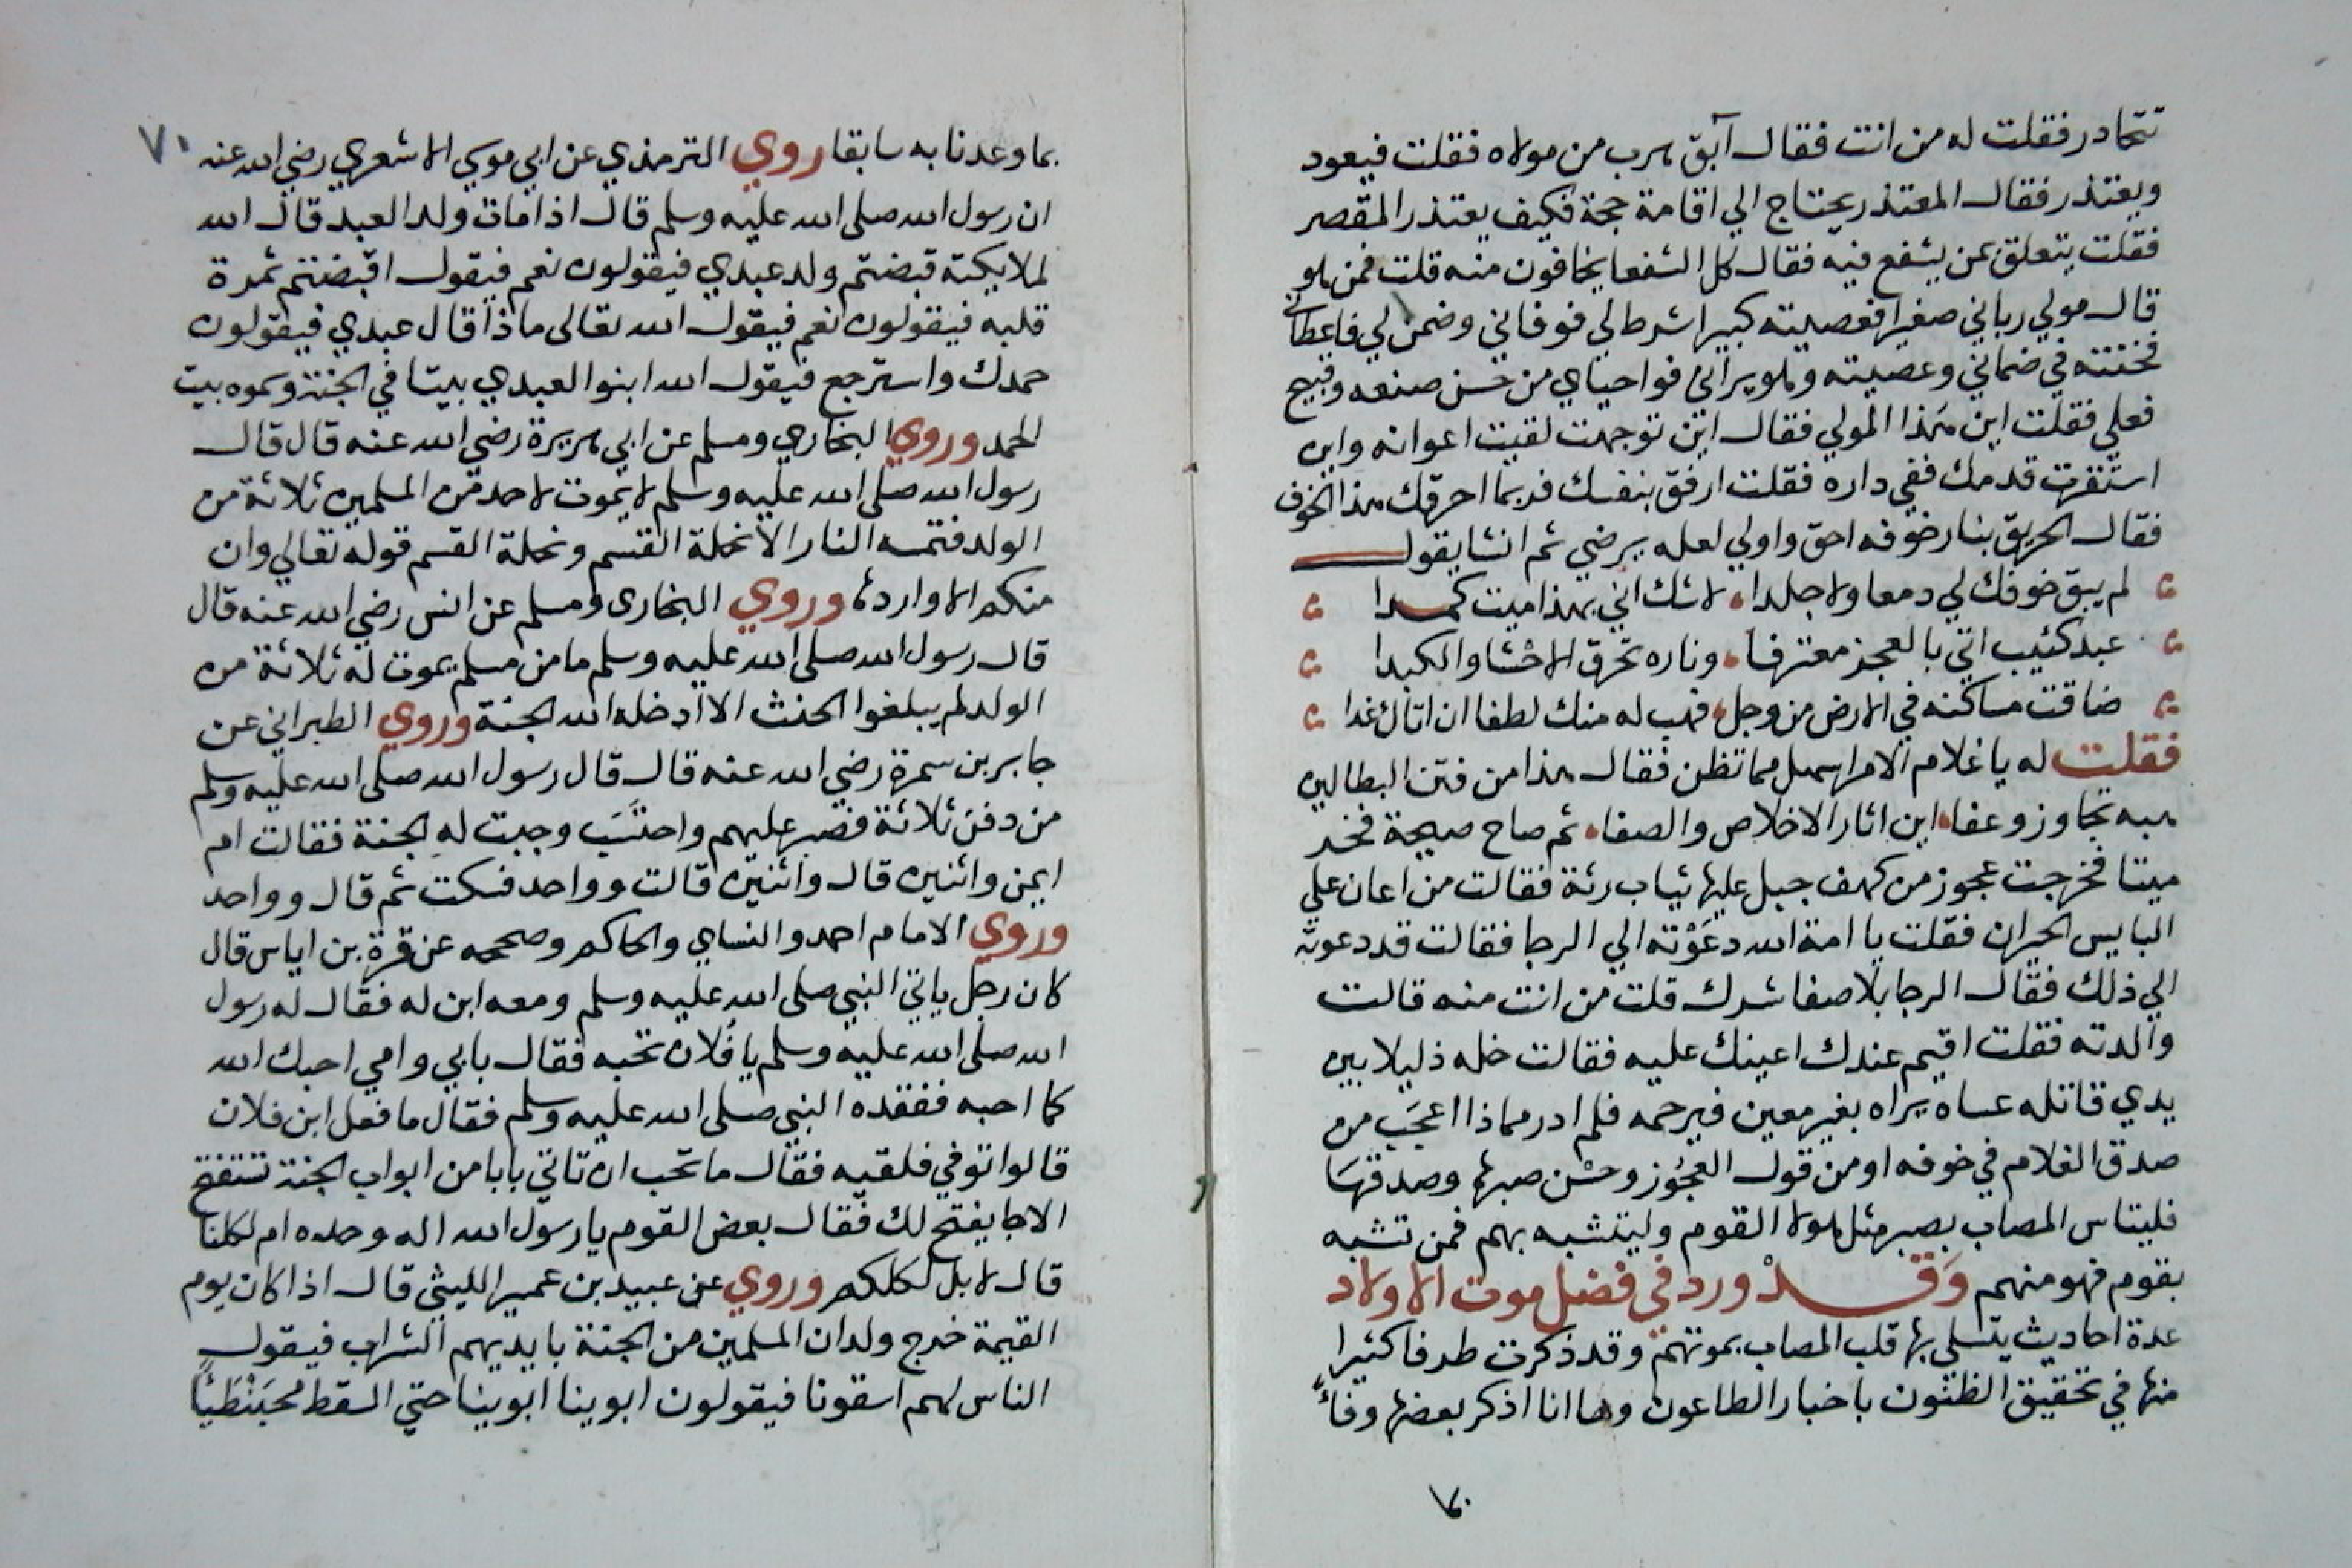 تتحادر فقلت له من انت فقال آبق هرب من مولاه فقلت فيعود
ويعتذر فقال المعتذر يحتاج الي اقامة حجة فكيف يعتذر المقصر
فقلت يتعلق بمن يشفع فيه فقال كل الشفعا يخافون منه قلت فمن هو
قال مولي رباني صغيرا فعصيته كبيرا شرط لي فوفاني وضمن لي فاعطاني
فخنته في ضماني وعصيته وهو يراني فواحياي من حسن صنعه وقبيح
فعلي فقلت اين هذا المولي فقال اين توجهت لقيت اعوانه واين
استقرت قدمك ففي داره فقلت ارفق بنفسك فربما احرقك هذا الخوف
فقال الحريق بنار خوفه احق واولي لعله يرضي ثم انشا يقول
لم يبق خوفك لي دمعا ولا جلدا لا شك اني بهذا ميت كمدا
عبد كئيب اتي بالعجز معترفا وناره تحرق الاحشا والكبدا
ضاقت مساكنه في الارض من وجل فهب له منك لطفا ان اتاك غدا
فقلت له يا غلام الامر اسهل مما تظن فقال هذا من فتن البطالين
هبه تجاوز وعفا اين اثار الاخلاص والصفا ثم صاح صيحة فخر
ميتا فخرجت عجوز من كهف جبل عليها ثياب رثة فقالت من اعان علي
البايس الحيران فقلت يا امة الله دعوته الي الرجا فقالت قد دعوته
الي ذلك فقال الرجا بلا صفا شرك قلت من انت منه قالت
والدته فقلت اقيم عندك اعينك عليه فقالت خله ذليلا بين
يدي قاتله عساه يراه بغير معين فيرحمه فلم ادر مماذا اعجب من
صدق الغلام في خوفه او من قول العجوز وحسن صبرها وصدقها
فليتاس المصاب بصبر مثل هولا القوم وليتشبه بهم فمن تشبه
بقوم فهو منهم وقد ورد في فضل موت الاولاد
عدة احاديث يتسلي بها قلب المصاب بموتهم وقد ذكرت طرفا كثيرا
منها في تحقيق الظنون باخبار الطاعون وها انا اذكر بعضها وفاء
٧٠
٧١
بما وعدنا به سابقا روي الترمذي عن ابي موسي الاشعري رضي الله عنه
ان رسول الله صلى الله عليه وسلم قال اذا مات ولد العبد قال الله
لملايكته قبضتم ولد عبدي فيقولون نعم فيقول اقبضتم ثمرة
قلبه فيقولون نعم فيقول الله تعالى ماذا قال عبدي فيقولون
حمدك واسترجع فيقول الله ابنوا لعبدي بيتا في الجنة وسموه بيت
الحمد وروي البخاري ومسلم عن ابي هريرة رضي الله عنه قال قال
رسول الله صلى الله عليه وسلم لا يموت لاحد من المسلمين ثلاثة من
الولد فتمسه النار الا تحلة القسم وتحلة القسم قوله تعالي وان
منكم الا واردها وروي البخارى ومسلم عن انس رضي الله عنه قال
قال رسول الله صلى الله عليه وسلم ما من مسلم يموت له ثلاثة من
الولد لم يبلغوا الحنث الا ادخله الله الجنة وروي الطبراني عن
جابر بن سمرة رضي الله عنه قال قال رسول الله صلى الله عليه وسلم
من دفن ثلاثة فصبر عليهم واحتسب وجبت له الجنة فقالت ام
ايمن واثنين قال واثنين قالت وواحد فسكت ثم قال وواحد
وروي الامام احمد والنساي والحاكم وصححه عن قرة بن اياس قال
كان رجل ياتي النبي صلى الله عليه وسلم ومعه ابن له فقال له رسول
الله صلى الله عليه وسلم يا فلان تحبه فقال بابي وامي احبك الله
كما احبه ففقده النبي صلى الله عليه وسلم فقال ما فعل ابن فلان
قالوا توفي فلقيه فقال ما تحب ان تاتي بابا من ابواب الجنة تستفتح
الا جا يفتح لك فقال بعض القوم يا رسول الله اله وحده ام لكلنا
قال لا بل لكلكم وروي عن عبيد بن عمير الليثي قال اذا كان يوم
القيمة خرج ولدان المسلمين من الجنة بايديهم الشراب فيقول
الناس لهم اسقونا فيقولون ابوينا ابوينا حتي السقط محبنطيا